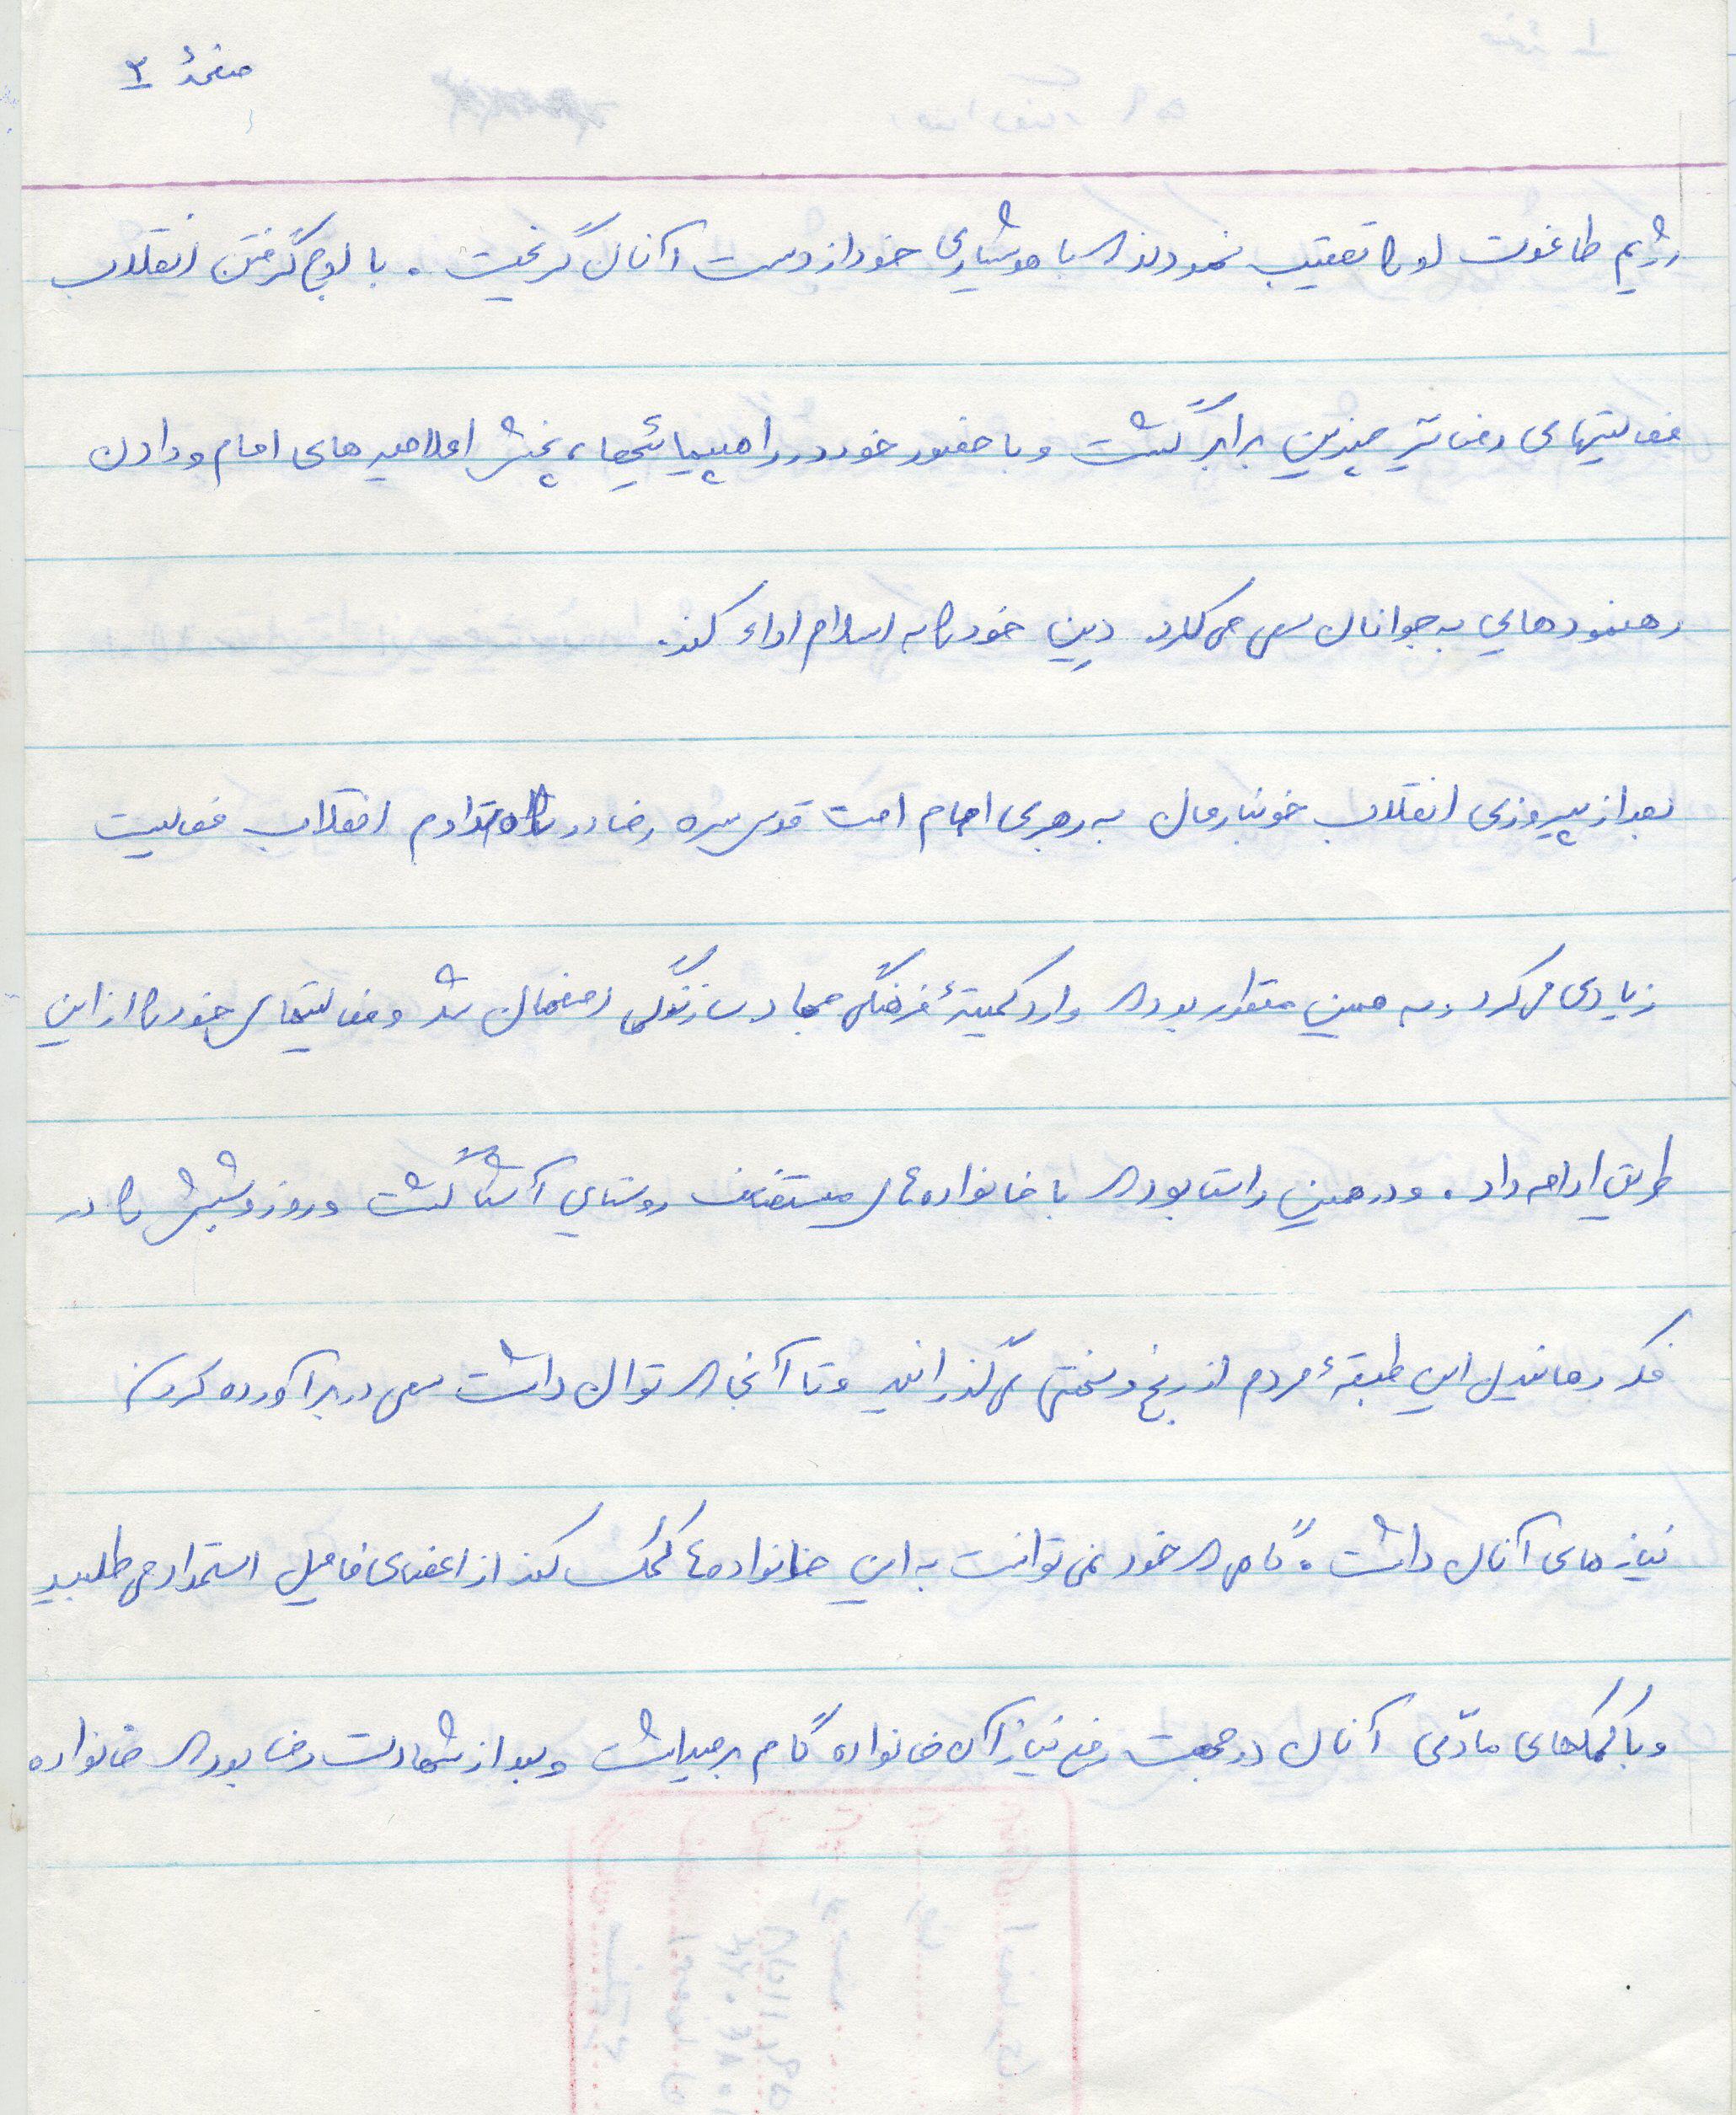 صفحهٔ ۲
رژیم طاغوت او را تعقیب نمودند که با هوشیاری خود از دست آنان گریخت. با اوج گرفتن انقلاب
فعالیتهای رضا نیز چندین برابر گشت و با حضور خود در راهپیمائیها، پخش اعلامیه های امام و دادن
رهنمودهایی به جوانان سعی می کرد دین خود را به اسلام اداء کند.
بعد از پیروزی انقلاب خونبارمان به رهبری امام امت قدس سره رضا در راه تداوم انقلاب فعالیت
زیادی می کرد و به همین منظور بود که وارد کمیتهٔ فرهنگی جهاد سازندگی اصفهان شد و فعالیتهای خود را از این
طریق ادامه داد. و در همین راستا بود که با خانواده های مستضعف روستایی آشنا گشت و روز و شبش را در
فکر رهانیدن این طبقهٔ مردم از رنج و سختی می گذرانید و تا آنجا که توان داشت سعی در برآورده کردن
نیازهای آنان داشت. گاهی که خود نمی توانست به این خانواده ها کمک کند از اعضای فامیل استمداد می طلبید
و با کمکهای مادّی آنان در جهت رفع نیاز آن خانواده گام برمیداشت و بعد از شهادت رضا بود که خانواده